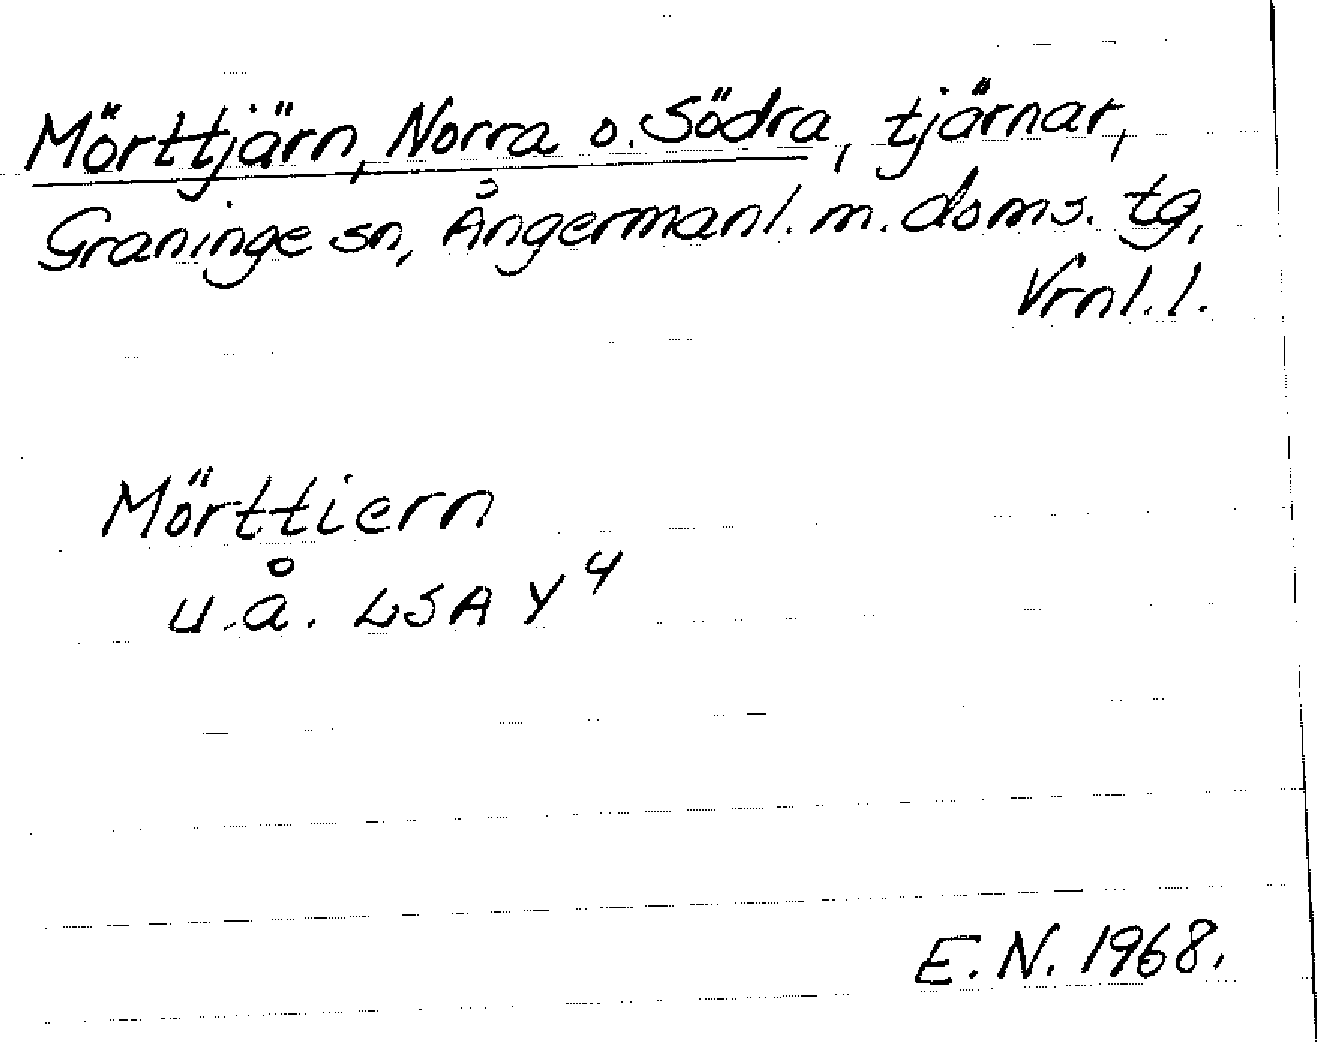 Mörttjärn, Norra o. Södra, tjärnar,
Graninge sn, Ångermanl. m. doms. tg,
Vrnl. l.
Mörttiern
u.å. LSA Y4
E. N. 1968.